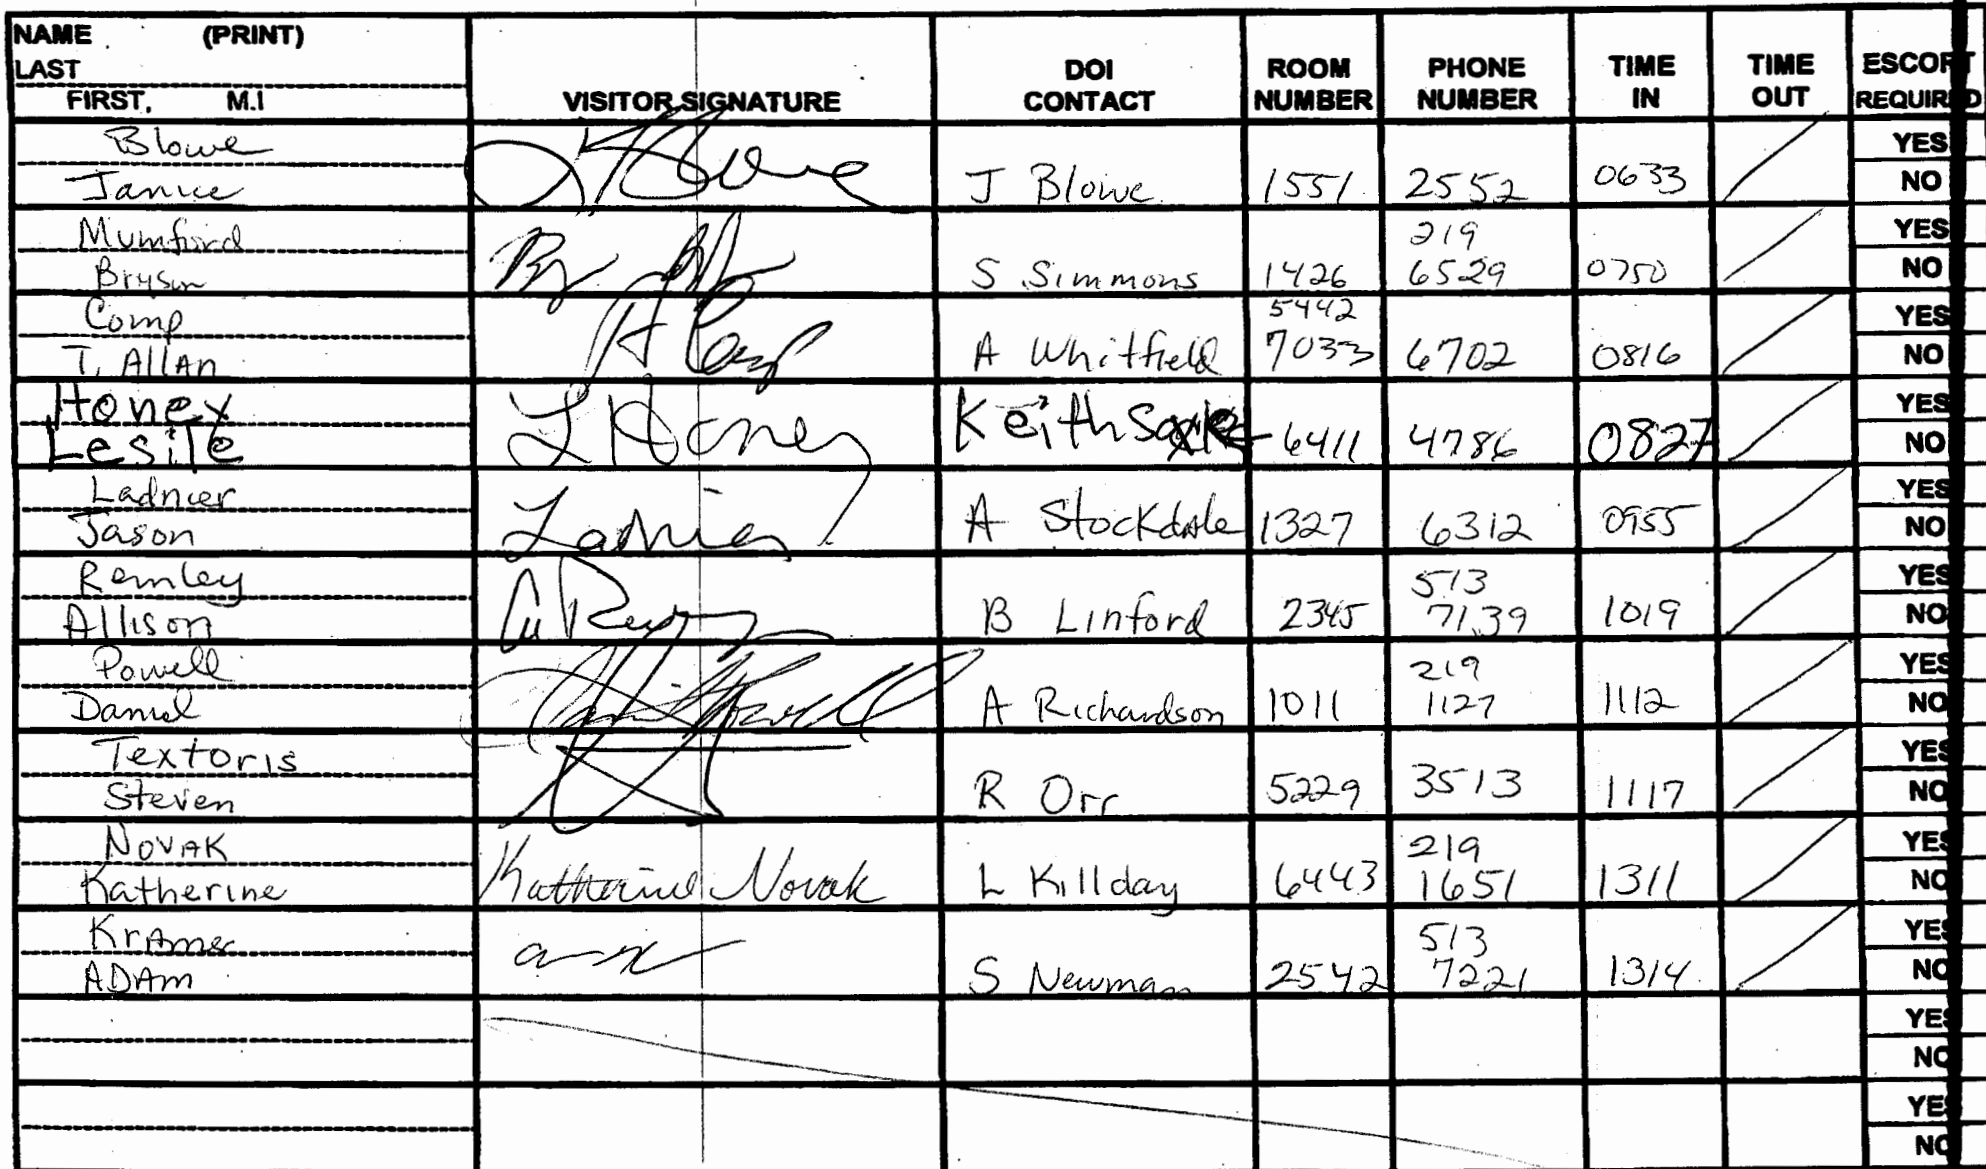 NAME (PRINT)
LAST
FIRST, M.I
VISITOR SIGNATURE
DOI CONTACT
ROOM NUMBER
PHONE NUMBER
TIME IN
TIME OUT
ESCORT REQUIRED
Blowe
Janice
J Blowe 1551 2552 0633
YES
NO
Mumford
Bryson
S Simmons 1426 219 6529 0750
YES
NO
Comp
T. Allan
A Whitfield 5442 7033 6702 0816
YES
NO
Honey
Lesile
L Honey
Keith 6411 4786 0827
YES
NO
Ladnier
Jason
Ladnier
A Stockdale 1327 6312 0955
YES
NO
Remley
Allison
B Linford 2345 513 7139 1019
YES
NO
Powell
Daniel
A Richardson 1011 219 1127 1112
YES
NO
Textoris
Steven
R Orr 5229 3513 1117
YES
NO
Novak
Katherine
Katherine Novak
L Killday 6443 219 1651 1311
YES
NO
Kramer
ADAm
S Newman 2542 513 7221 1314
YES
NO
YES
NO
YES
NO